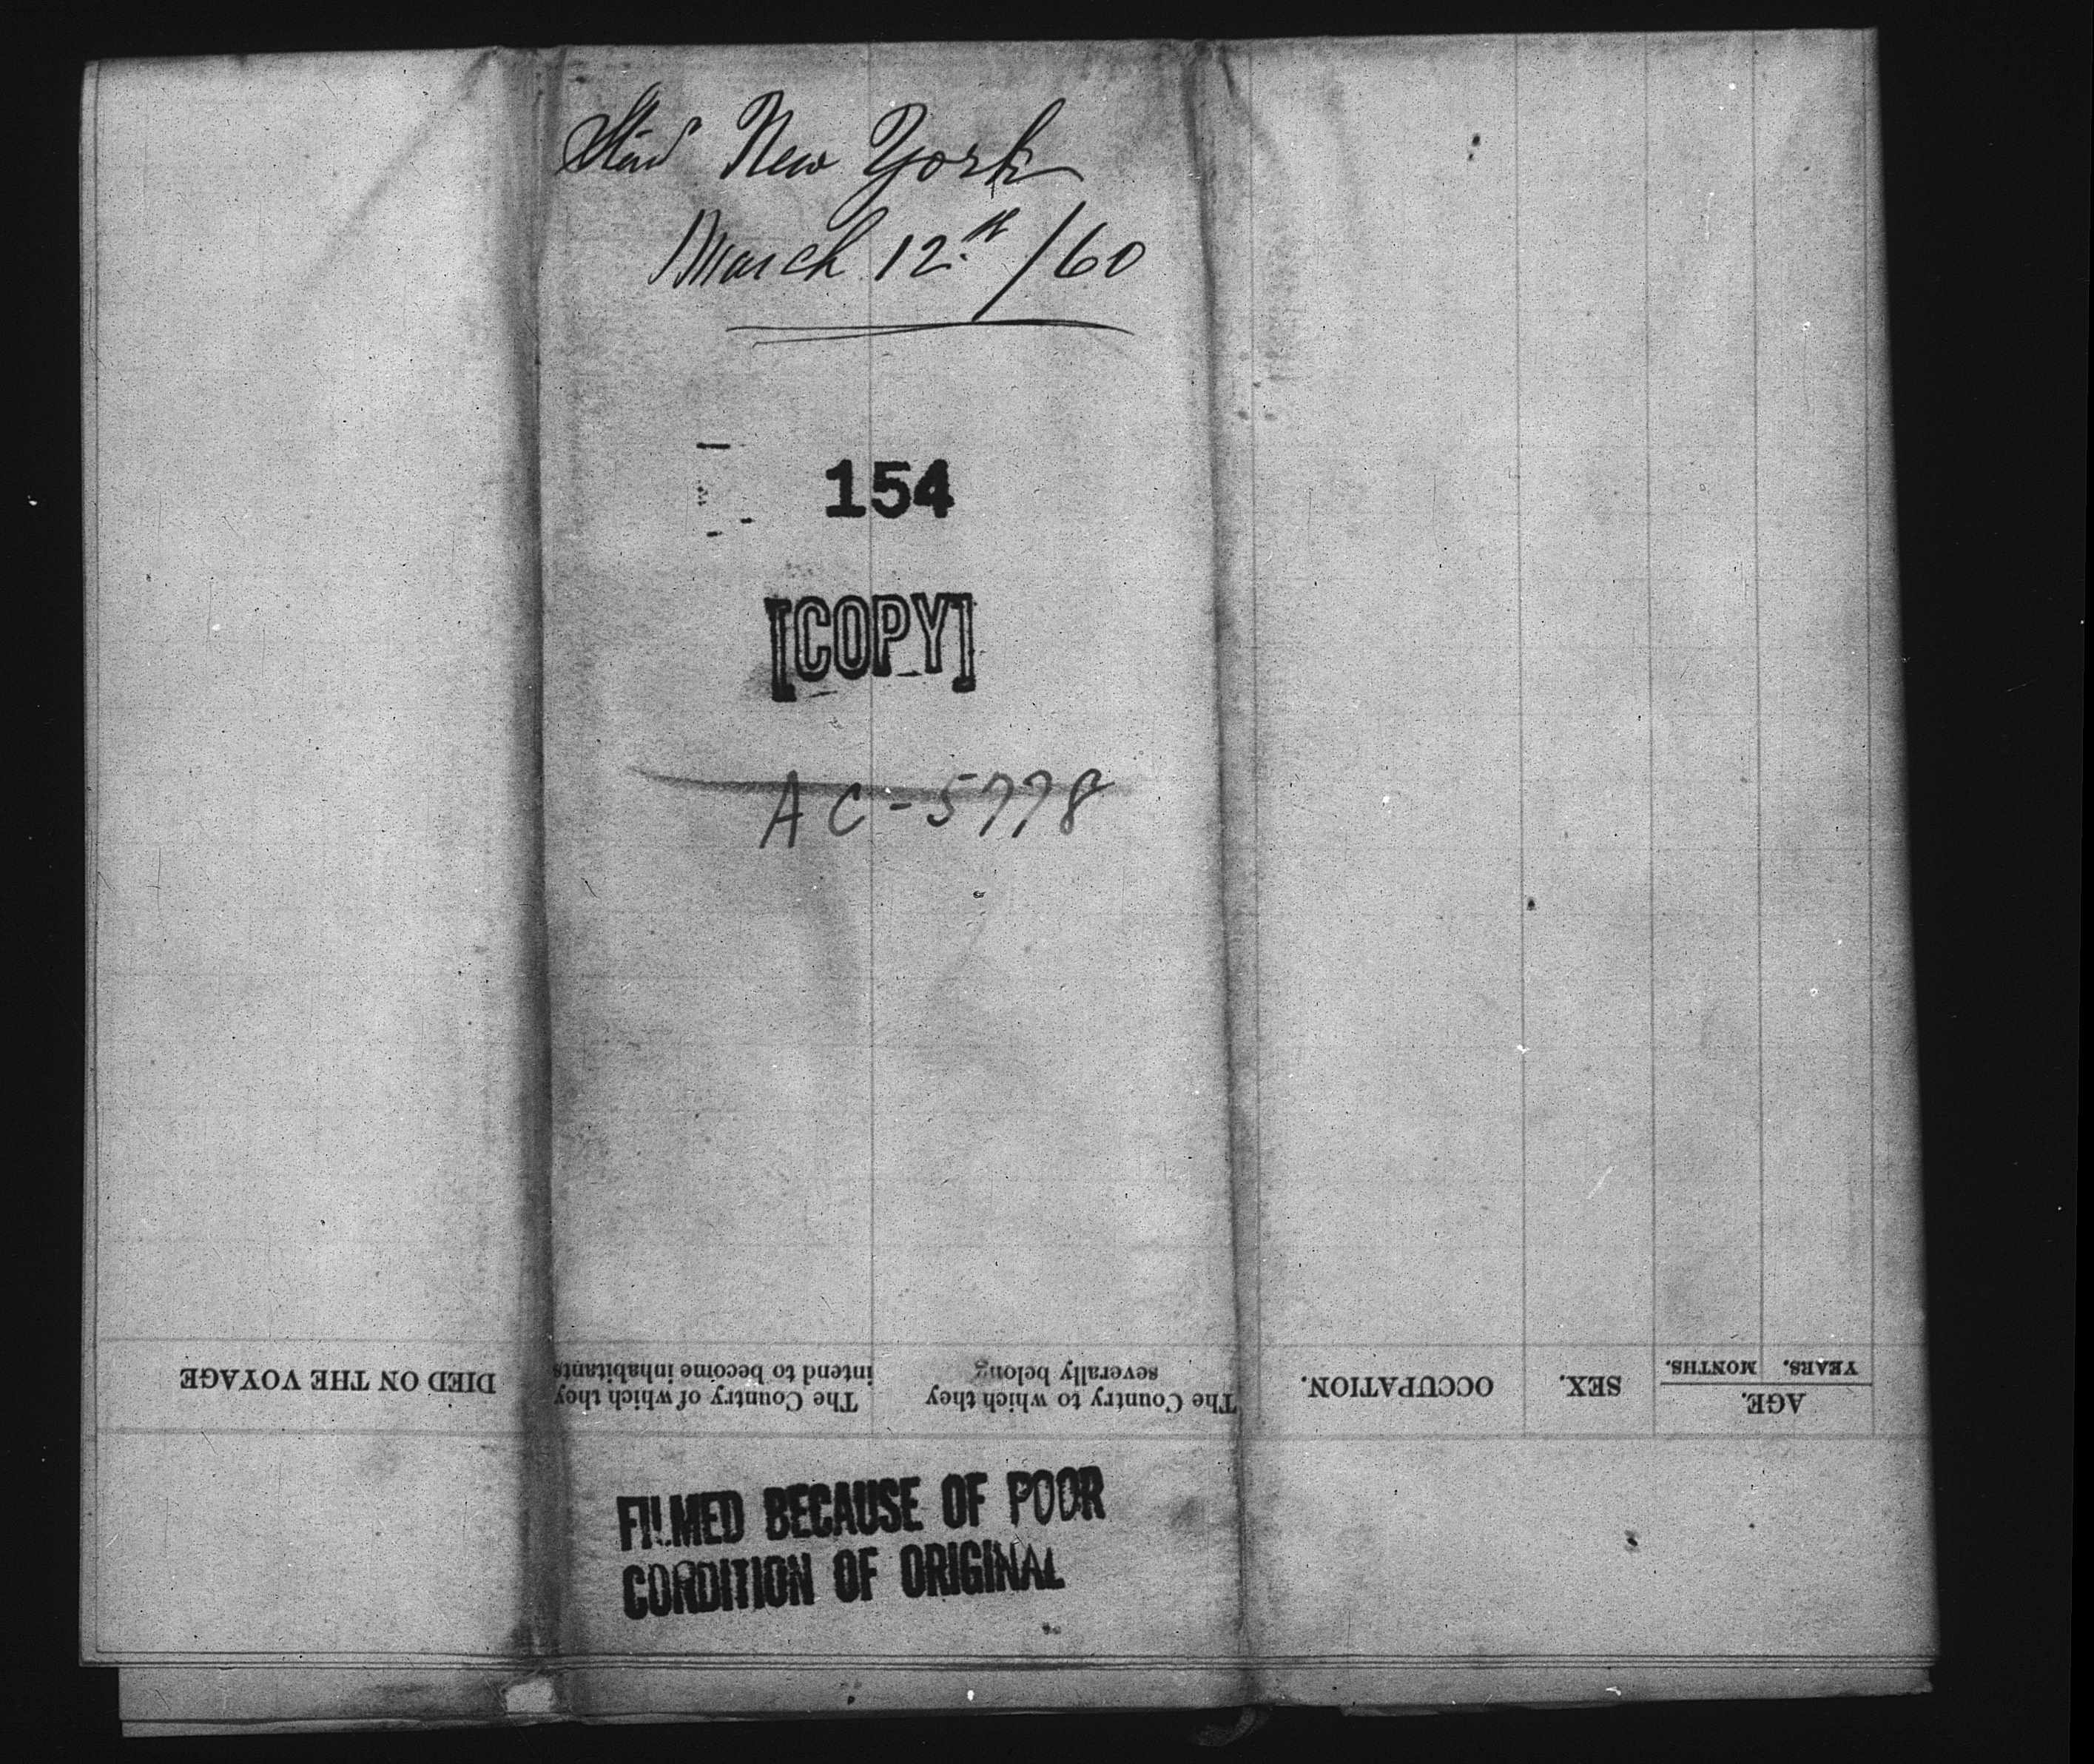 New York
March 12th /60
154
[COPY]
AC-5778
DIED ON THE VOYAGE
The Country of which they
intend to become inhabitants
The Country to which they
severally belong
OCCUPATION.
SEX.
AGE.
YEARS.
MONTHS.
FILMED BECAUSE OF POOR
CONDITION OF ORIGINAL